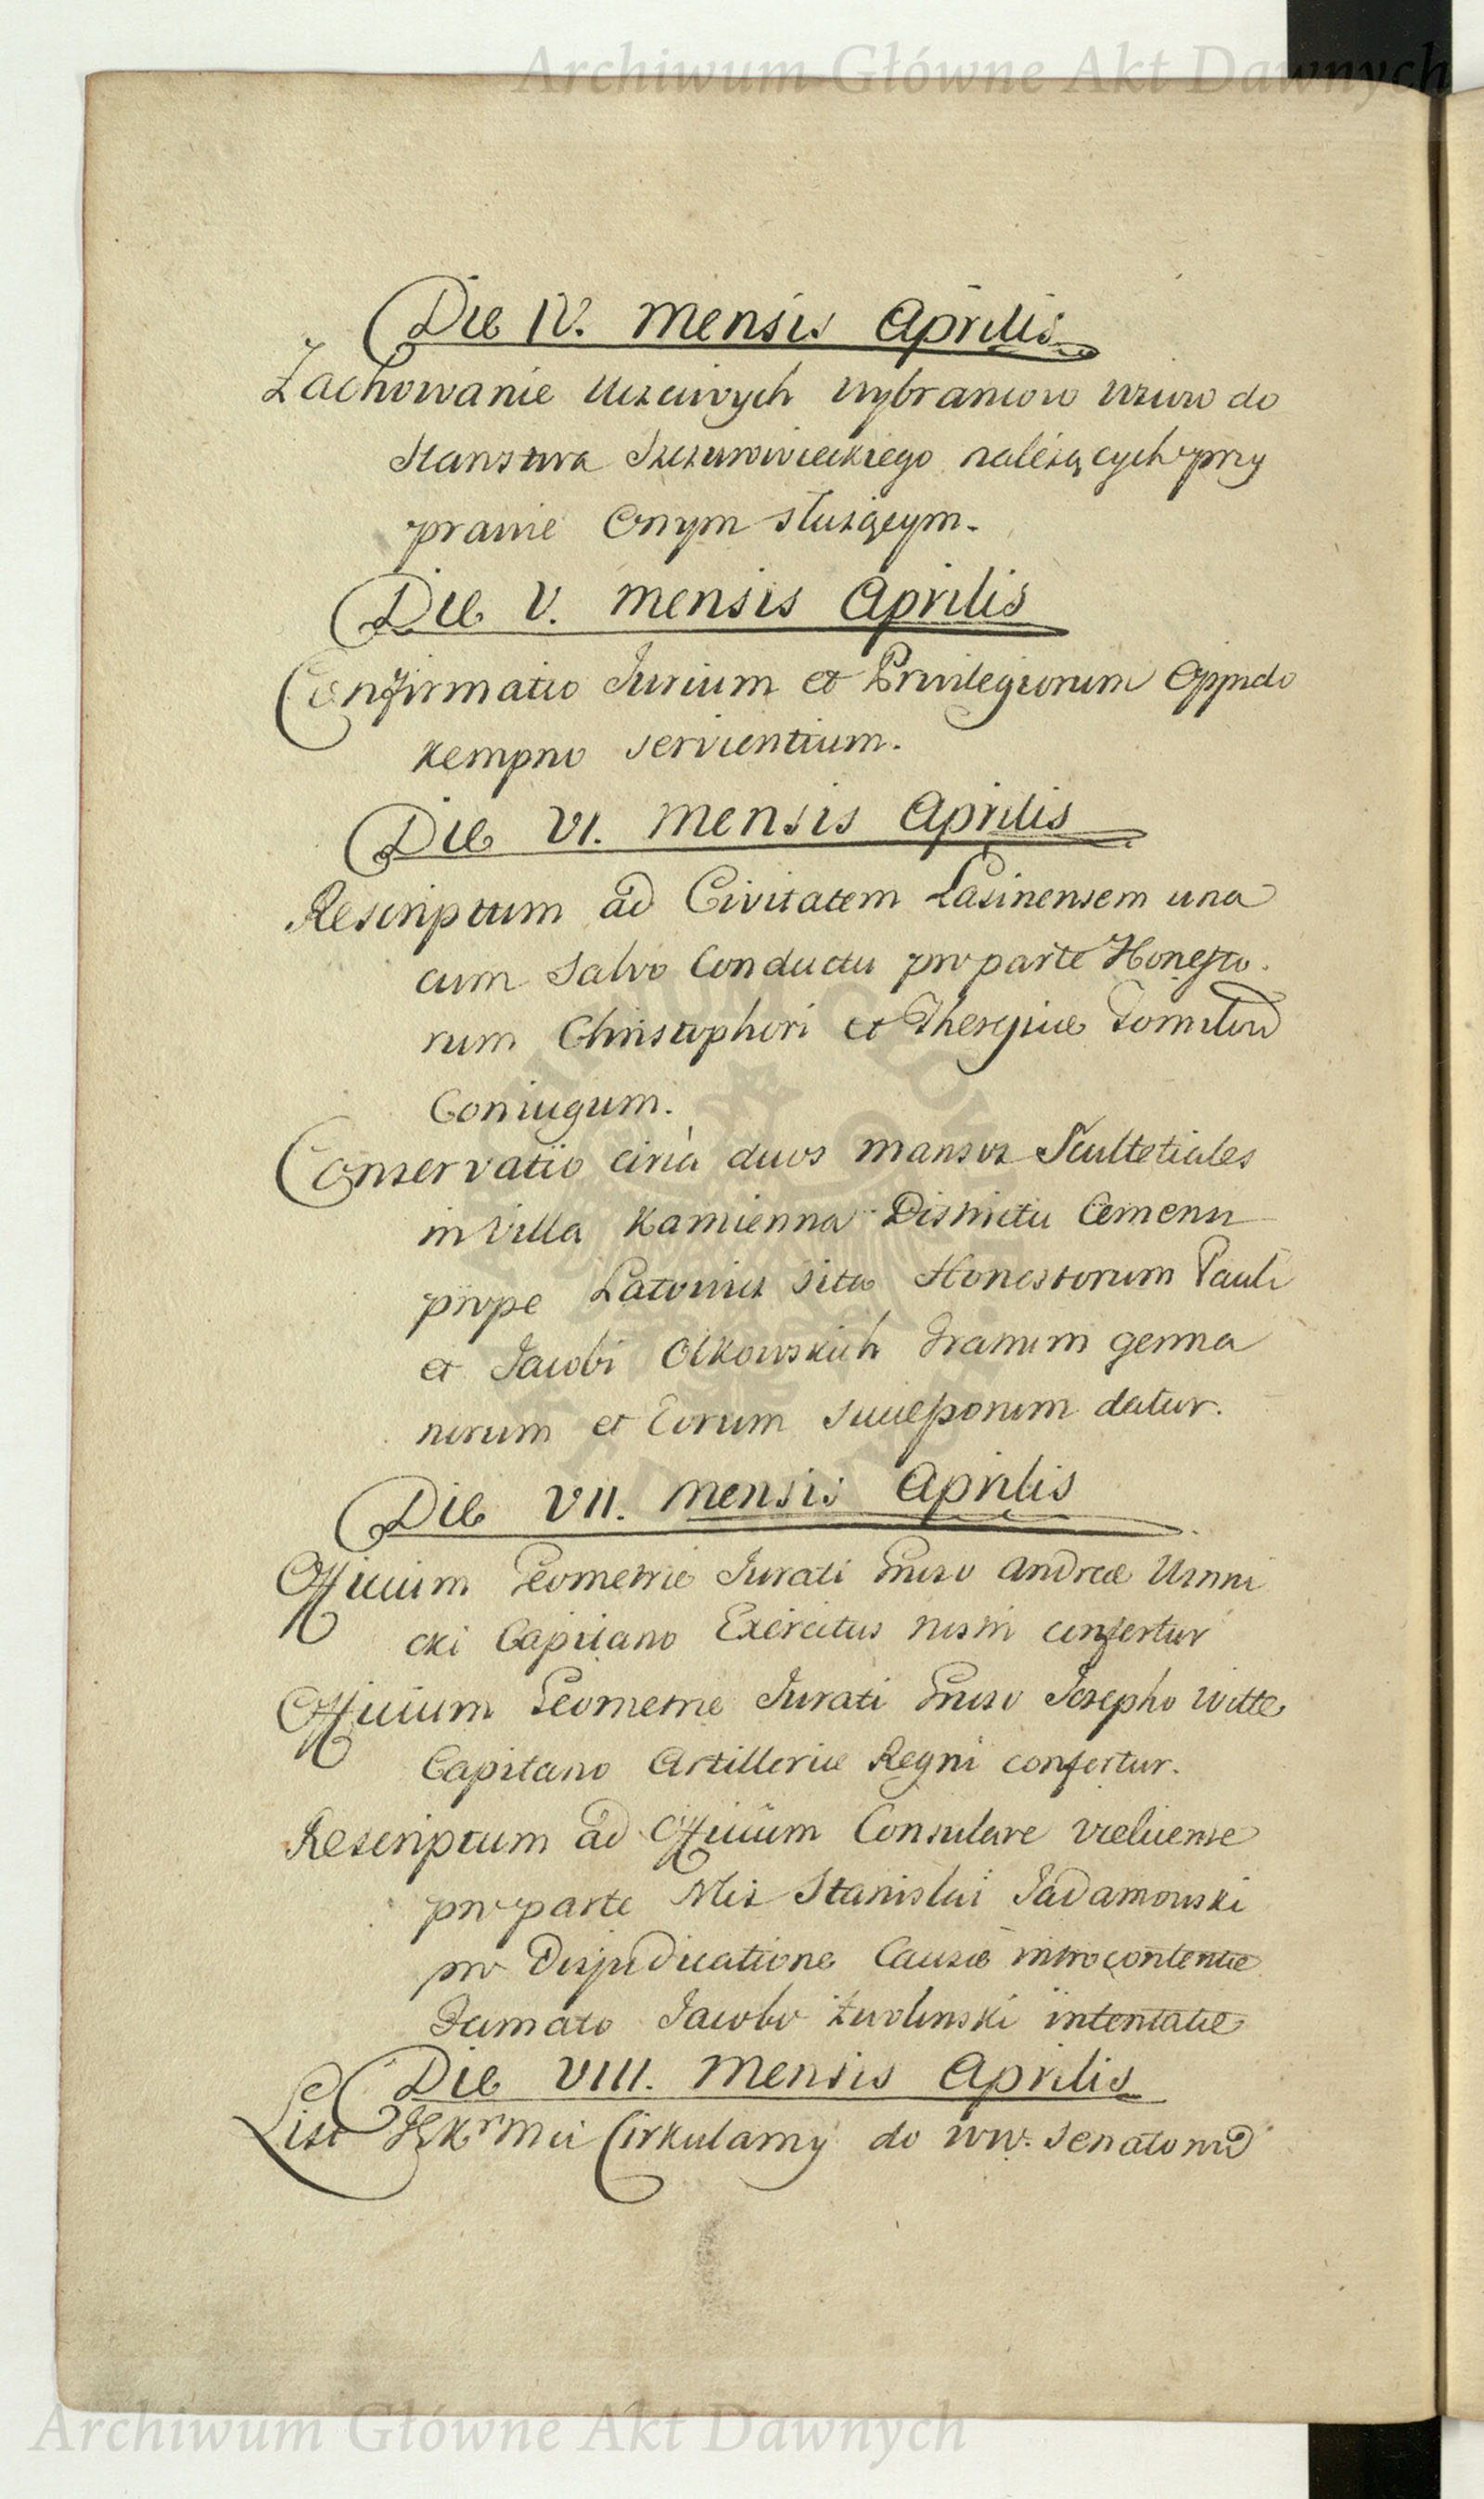 Archiwum Główne Akt Dawnych
Die IV. Mensis Aprilis
Zachowanie Uczciwych wybrancow do
należących przy
prawie Onym służącym.
Die V. Mensis Aprilis
Confirmatio Jurium et Privilegiorum Oppido
Kempno servientium.
Die VI. Mensis Aprilis
Rescriptum ad Civitatem Lasinensem una
cum Salvo Conductu pro parte Honesto
rum Christophori et Theresiae
Coniugum.
Conservatio circa duos mansos Scultetiales
in Villa Kamienna Districtu
prope sita Honestorum Pauli
et Jacobi Olkowskich Fratrum germa
norum et Eorum Successorum datur.
Die VII. Mensis Aprilis
Officium Geometrie Jurati Gnroso Andreae
cki Capitano Exercitus nostri confertur
Officium Geometrie Jurati Gnroso Josepho Witte
Capitano Artilleriae Regni confertur.
Rescriptum ad Officium Consulare vielicense
pro parte Nlis Stanislai Jadamowski
pro Dijudicatione Causae introcontentae
Famato Jacobo Zwolinski intentatae
Die VIII. Mensis Aprilis
List JKr Mci Cirkularny do WW. Senatorow
Archiwum Główne Akt Dawnych